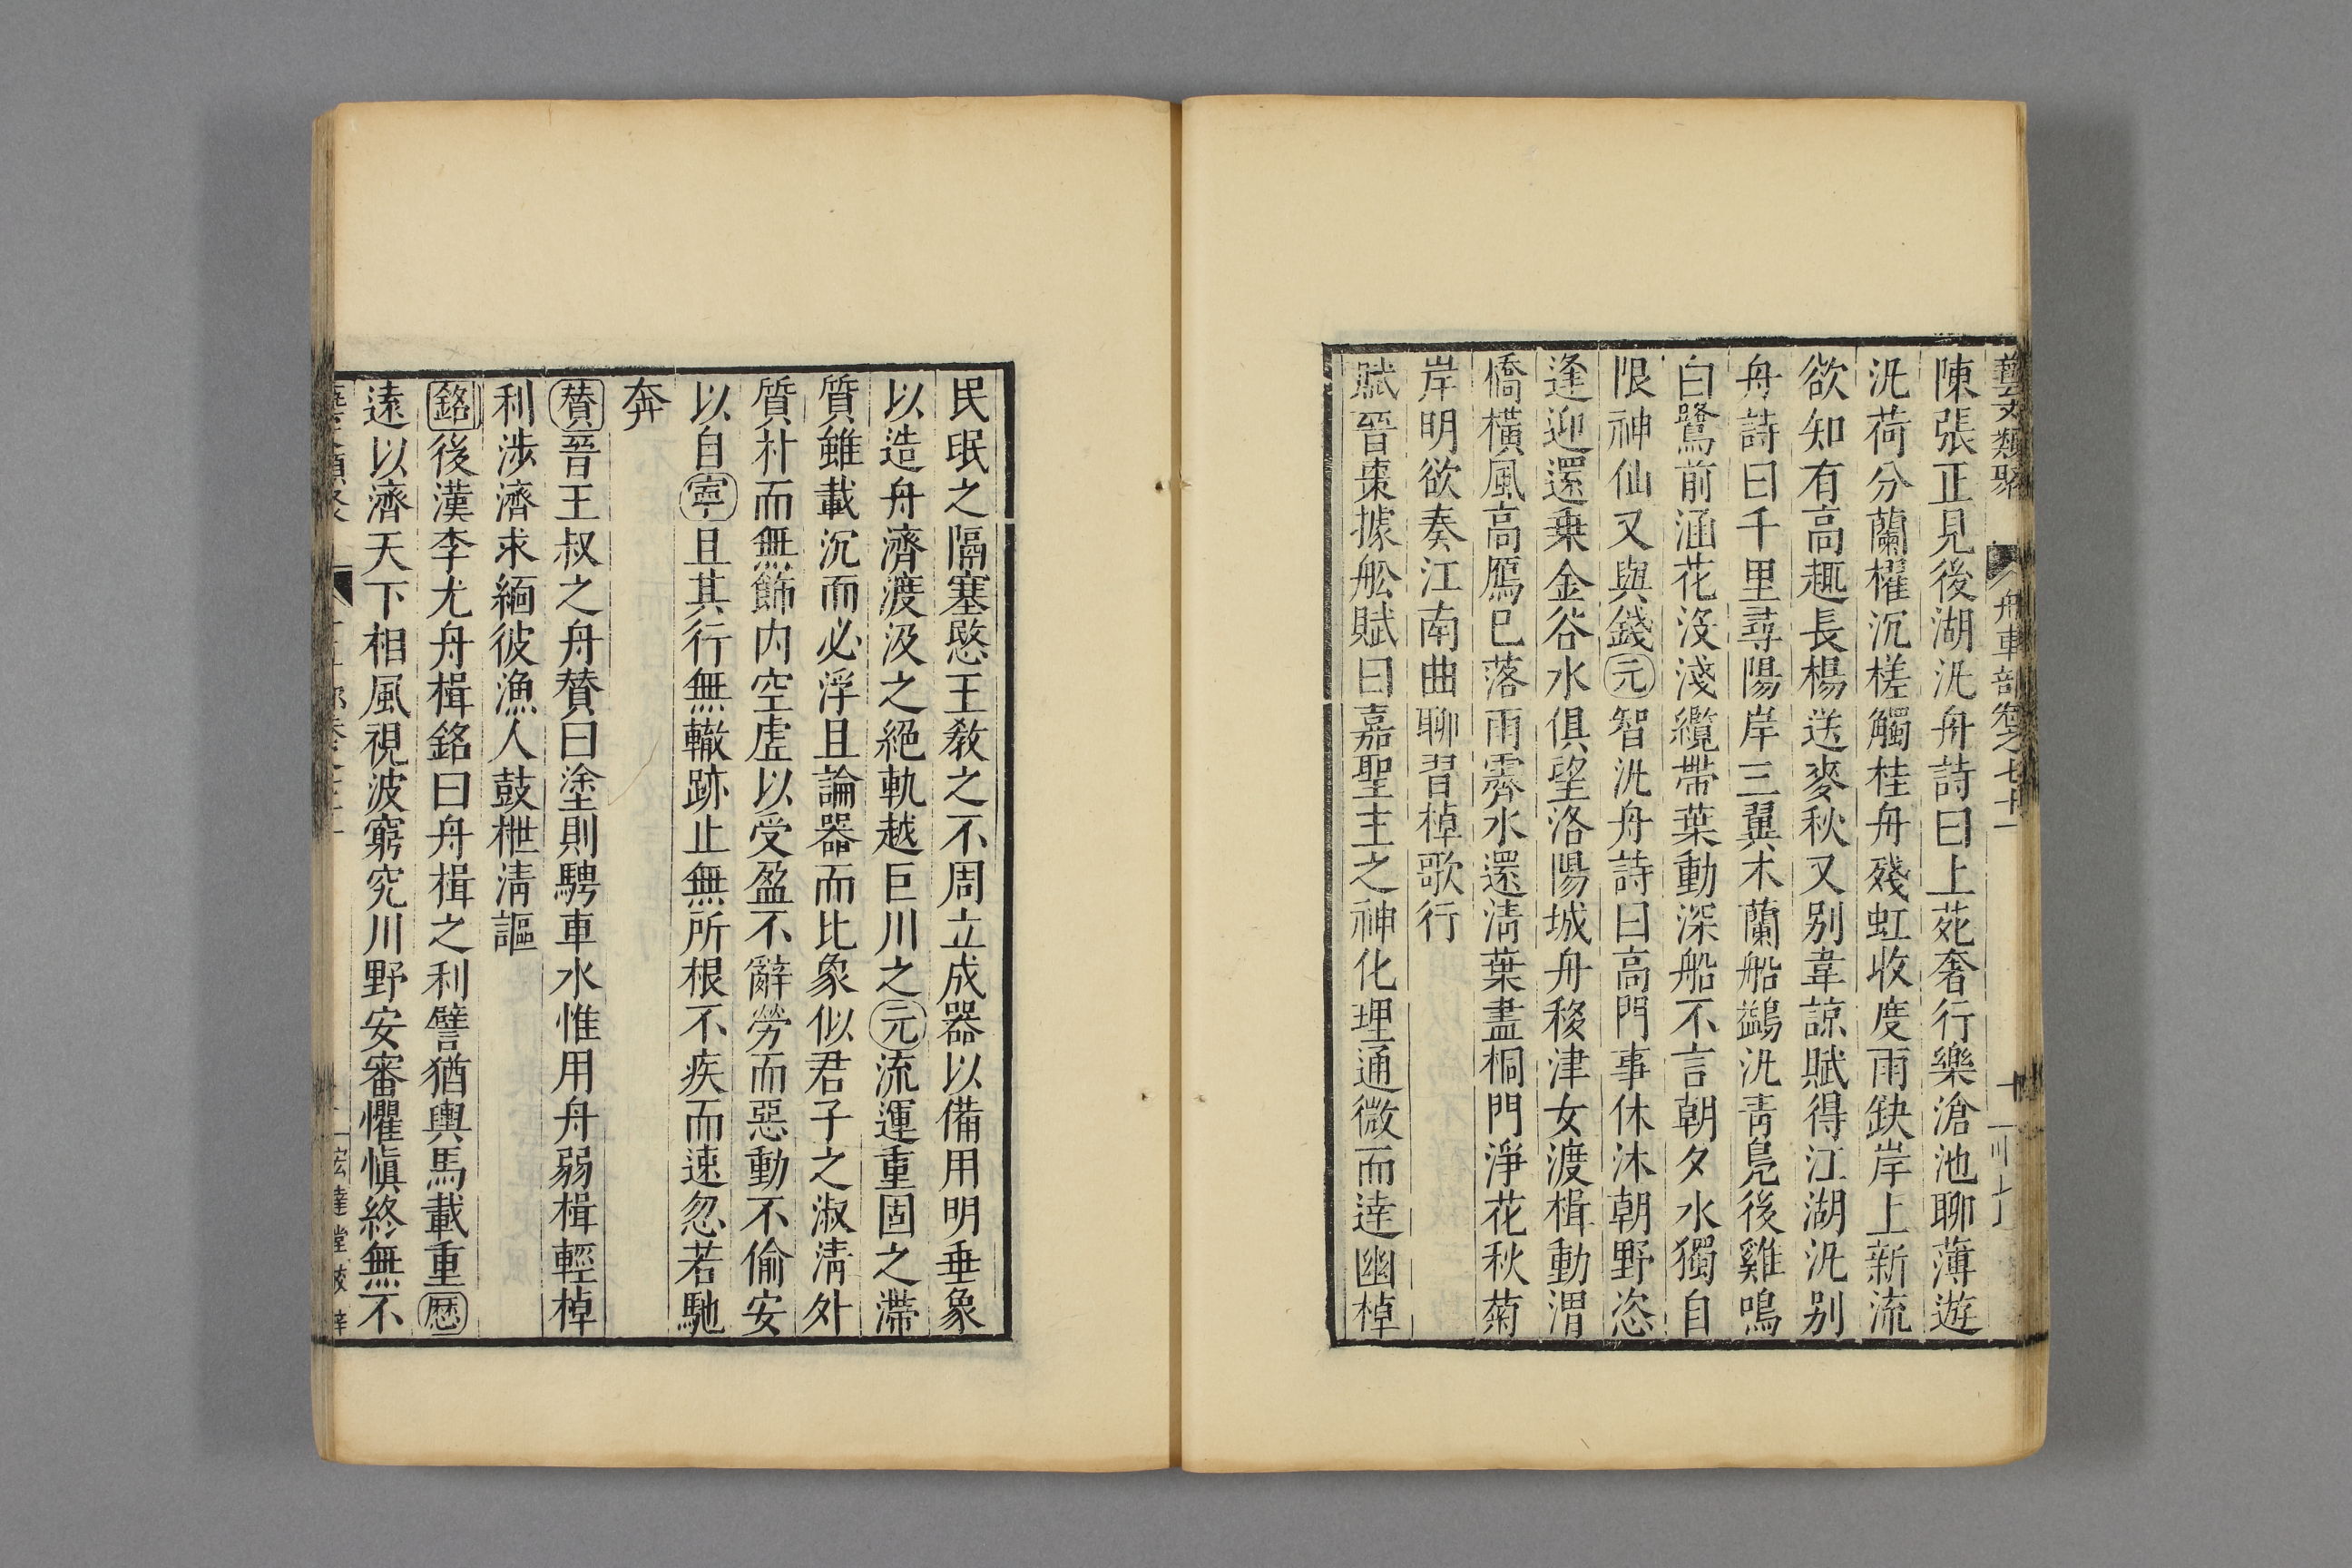 藝文類聚 舟車部卷之七十一
陳張正見後湖汎舟詩曰上苑奢行樂滄池聊薄遊
汎荷分蘭櫂沉槎觸桂舟殘虹收度雨缺岸上新流
欲知有高趣長楊送麥秋又别韋諒賦得江湖汎别
舟詩曰千里尋陽岸三翼木蘭船鷁汎靑鳬後雞鳴
白鷺前涵花沒淺纜帶葉動深船不言朝夕水獨自
限神仙又與錢元智汎舟詩曰高門事休沐朝野恣
逢迎還乗金谷水俱望洛陽城舟移津女渡楫動渭
僑橫風高鴈已落雨霽水還淸葉盡桐門淨花秋菊
岸明欲奏江南曲聊習棹歌行
賦晉棗據舩賦曰嘉聖主之神化理通微而逹幽棹
民氓之隔塞愍王敎之不周立成器以備用明垂象
以造舟濟渡汲之絕軌越巨川之元流運重固之滯
質雖載沉而必浮且論器而比象似君子之淑淸外
質朴而無飾内空虚以受盈不辭勞而惡動不偷安
以自寧且其行無轍跡止無所根不疾而速忽若馳
奔
贊晉王叔之舟贊曰塗則騁車水惟用舟弱楫輕棹
利涉濟求緬彼漁人鼓枻淸謳
銘後漢李尤舟楫銘曰舟楫之利譬猶輿馬載重歷
遠以濟天下相風視波窮究川野安審懼愼終無不